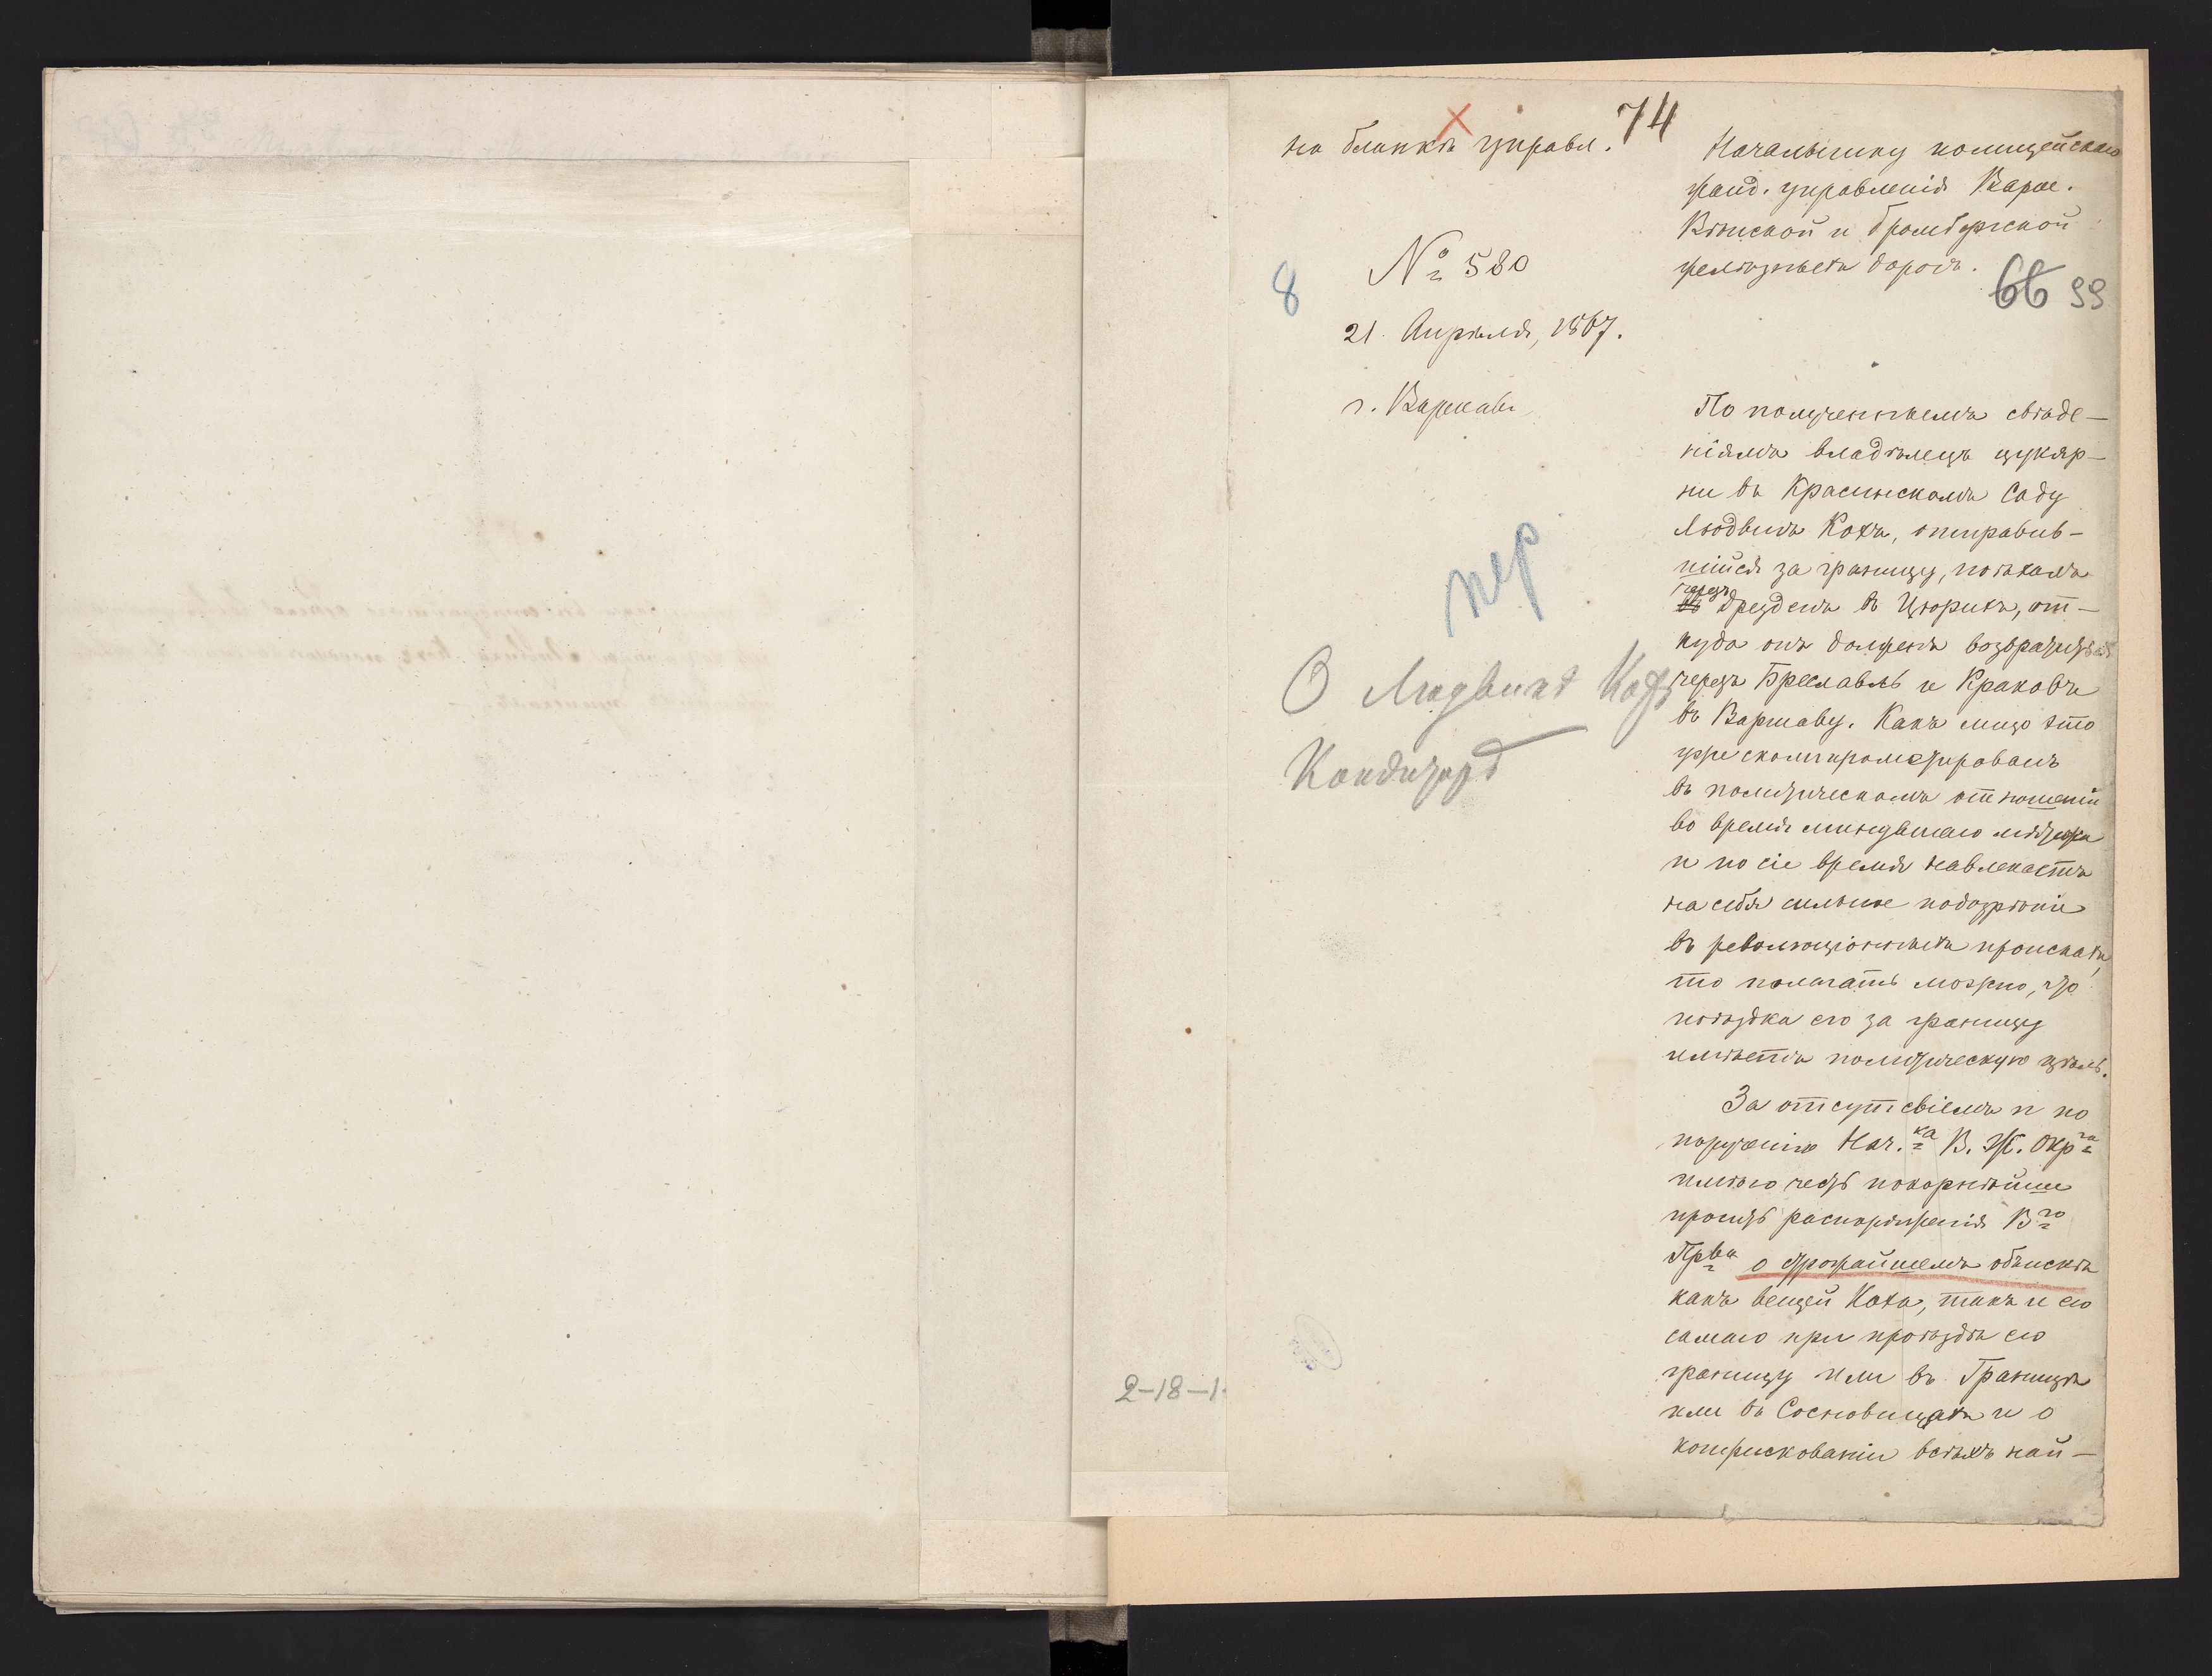 на бланкѣ управл.
74
№ 580
8
21 Апрѣля, 1867.
г. Варшава
пер
О Людвикѣ Кохѣ
Кандитерѣ
2-18-1
Начальнику полицейскаго
жанд. управленія Варш.
Вѣнской и Бромбергской
желѣзныхъ дорогъ.
66 99
По полученнымъ свѣде-
ніямъ владѣлецъ цукяр-
ни въ Красинскомъ Саду
Людвигъ Кохъ, отправив-
шійся за границу, поѣхалъ
чрезъ
въ Дрезденъ въ Цюрихъ, от-
куда онъ долженъ возвратиться
черезъ Бреславль и Краковъ
въ Варшаву. Какъ лицо это
уже скомпрометировано
въ политическомъ отношеніи
во время минувшаго мятежа
и по сіе время навлекаетъ
на себя сильное подозрѣніе
въ революціонныхъ проискахъ,
то полагать можно, что
поѣздка его за границу
имѣетъ политическую цѣль.
За отсутсвіемъ и по
порученію Нач.ка В. Ж. Окр га
имѣю честь покорнѣйше
просить распоряженія В го
Пр ва о строжайшемъ обыскѣ
какъ вещей Коха, такъ и его
самаго при проѣздѣ его
границу или въ Границѣ
или въ Сосновицахъ и о
конфискованіи всѣхъ най-